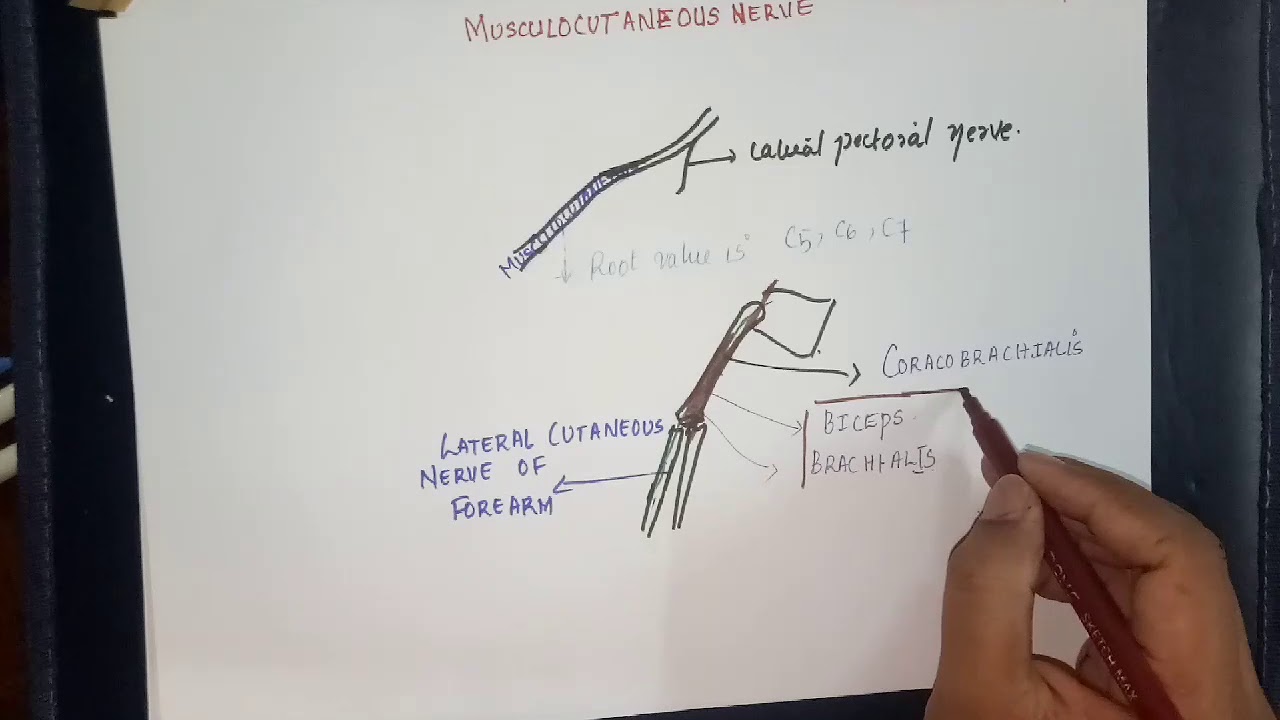 MUSCULOCUTANEOUS NERVE
Lateral pectoral nerve.
Musculocutaneous
Root value is C5, C6, C7
CORACOBRACHIALIS
BICEPS
BRACHIALIS
LATERAL CUTANEOUS
NERVE OF
FOREARM
SKETCH MAX